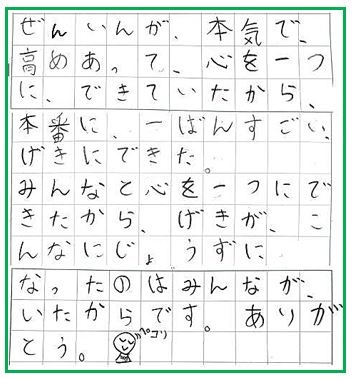 ぜんいんが、本気で、
高めあって、心を一つ
に、できていたから、
本番に、一ばんすごい、
げきにできた。
みんなと心を一つにで
きたから、げきが、こ
んなにじょうずに
なったのはみんなが、
いたからです。ありが
とう。
ペコリ